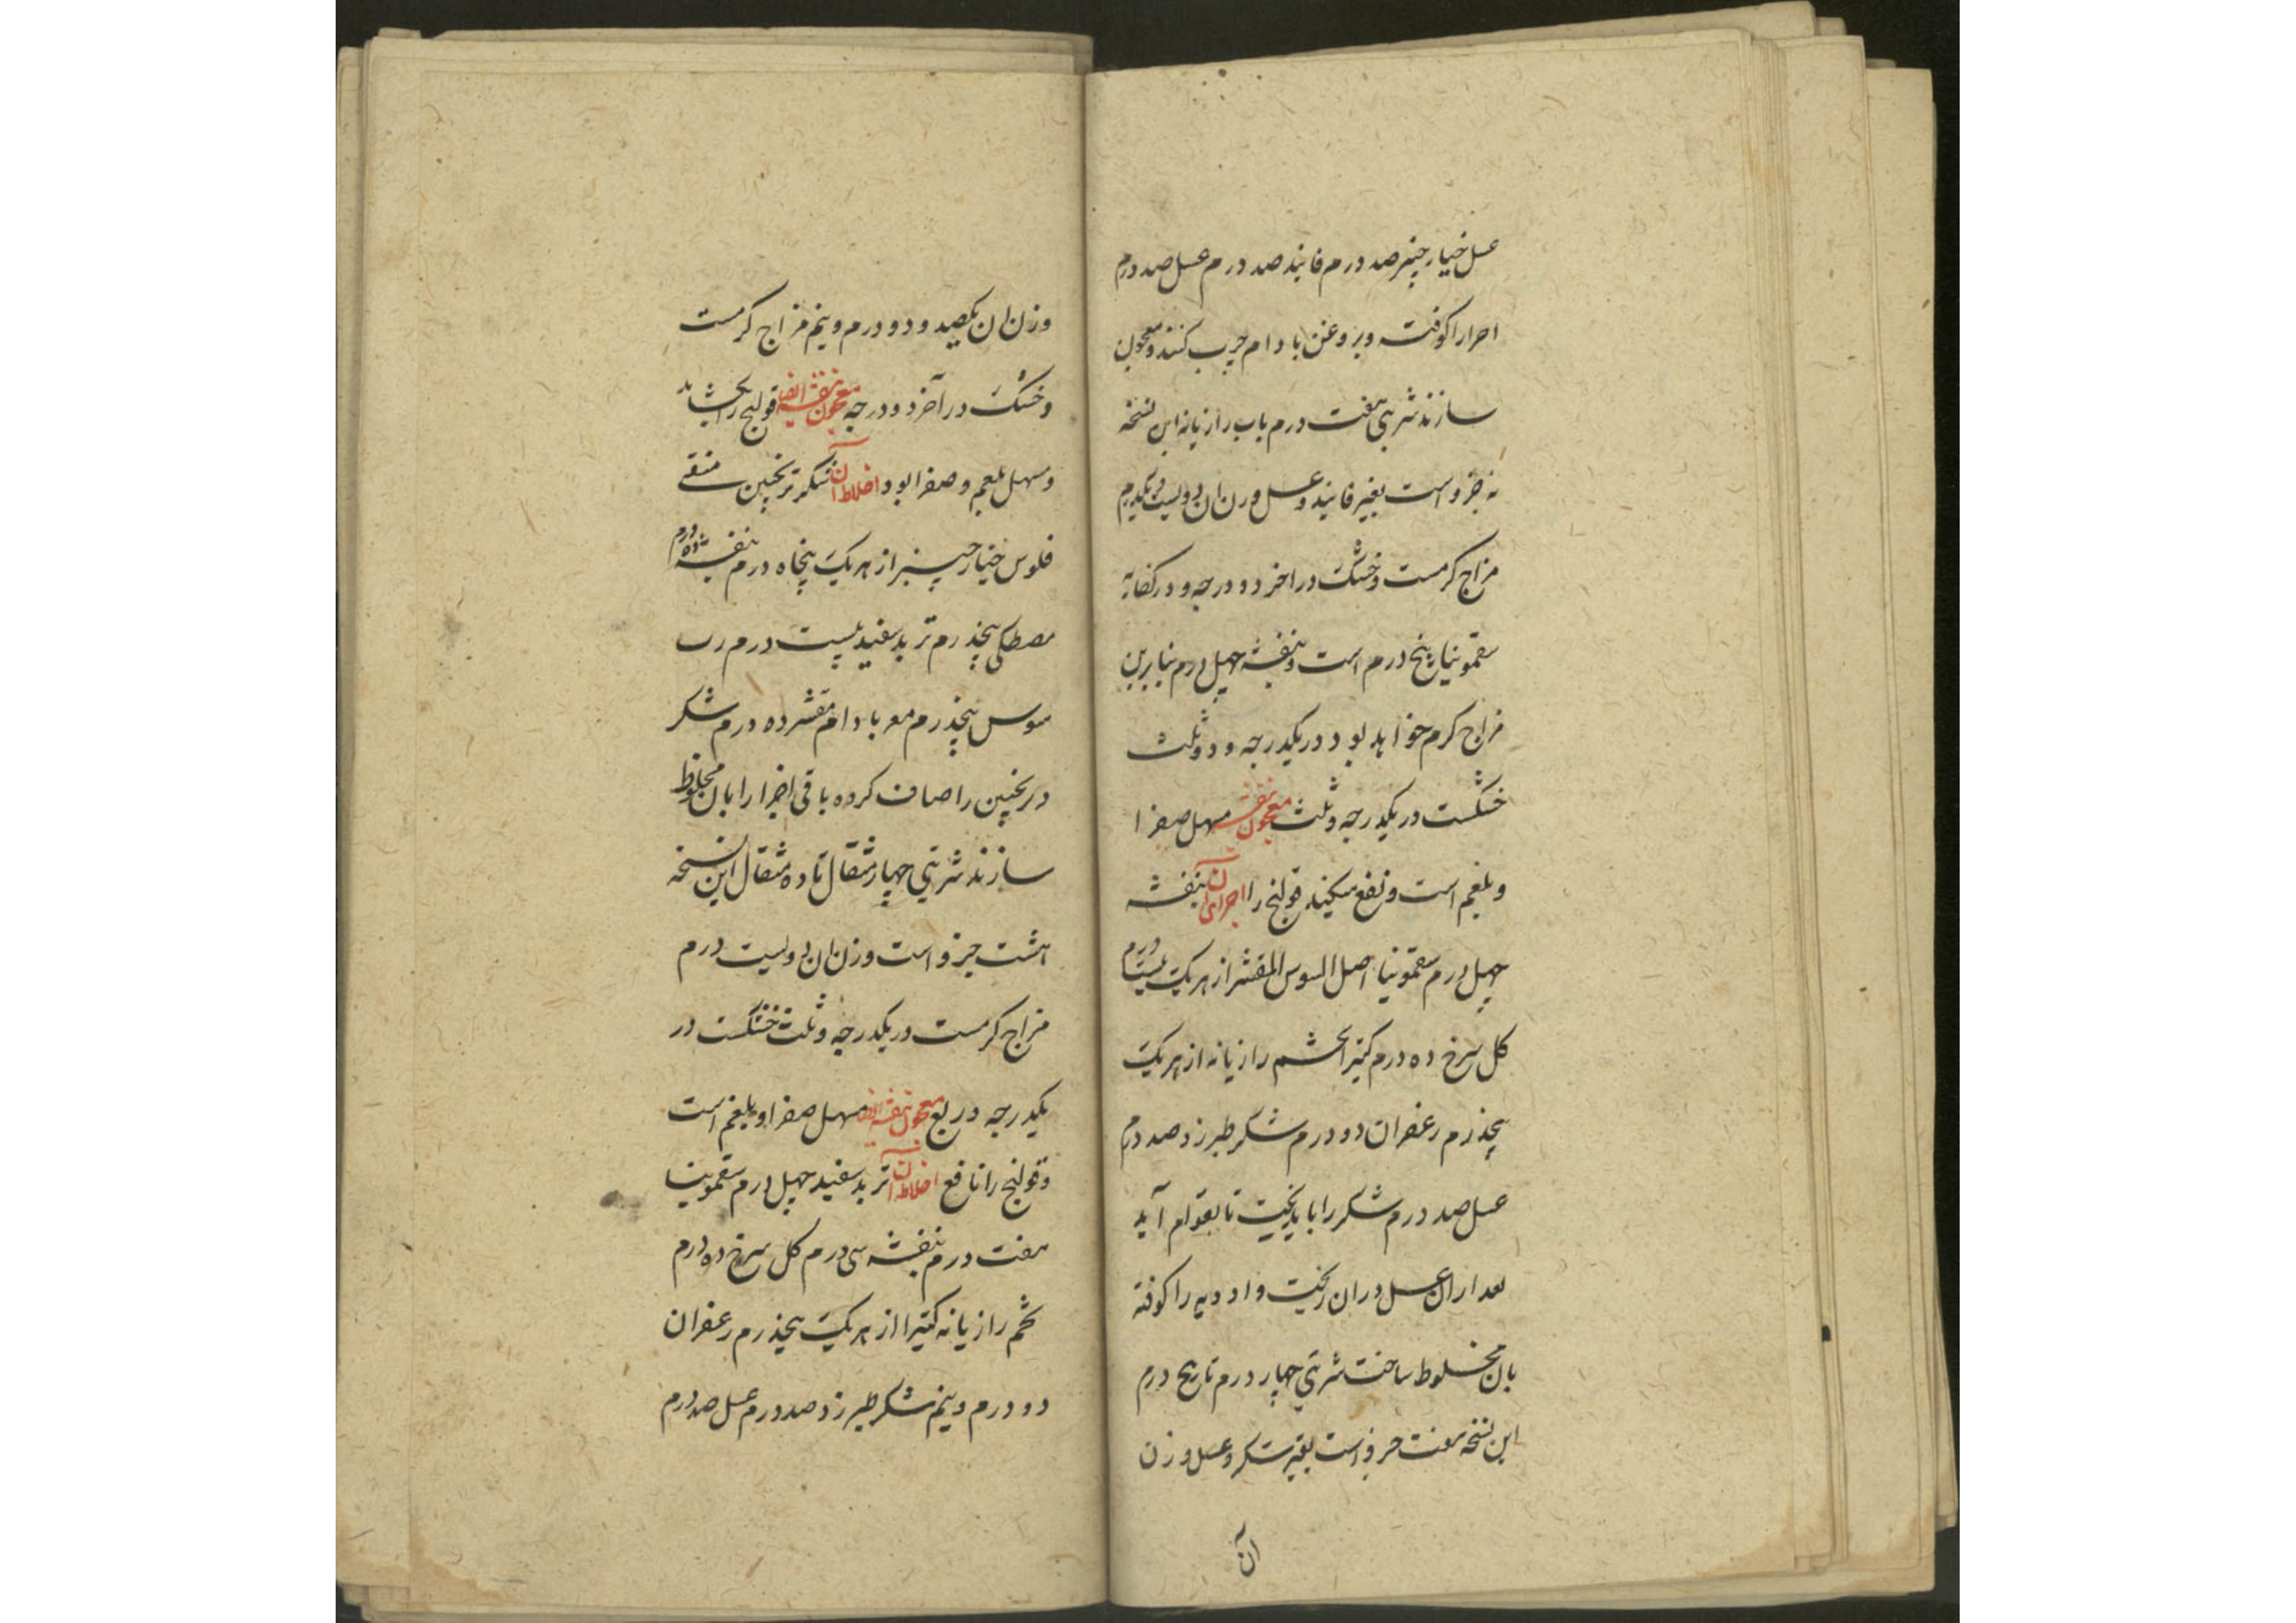 عسل خیار چنبر صد درم فانیذ صد درم عسل صد درم
اجزا را کوفته و بروغن بادام چرب کنند و معجون
سازند شربتی هفت درم باب رازیانه این نسخه
نه جزو است بغیر فانیذ و عسل وزن ان دویست و یکدرم
مزاج کرمست و خشک در اخر دو درجه و در کفایه
سقمونیا پنج درم است و بنفشه چهل درم بنابرین
مزاج کرم خواهد بود در یکدرجه و دو ثلث
خشکست در یکدرجه و ثلث معجون بنفشه مسهل صفرا
و بلغم است و نفع میکند قولنج را اجزای آن بنفشه
چهل درم سقمونیا اصل السوس المقشر از هر یک بیست درم
کل سرخ ده درم کتیرا تخم رازیانه از هر یک
پنجدرم زعفران دو درم شکر طبرزد صد درم
عسل صد درم شکر را باید پخت تا بقوام آید
بعد ازان عسل دران ریخت و ادویه را کوفته
بان مخلوط ساخت شربتی چهار درم تا پنج درم
این نسخه هفت جزو است بغیر شکر و عسل وزن
آن
وزن ان یکصد و دو درم و نیم مزاج کرمست
و خشک در آخر دو درجه معجون بنفشه ایضا قولنج را بکشاید
و مسهل بلغم و صفرا بود اخلاط آن شکر ترنجبین منقی
فلوس خیار چنبر از هر یک پنجاه درم بنفشه ده درم
مصطکی پنجدرم تربد سفید بیست درم رب
سوس پنجدرم مغز بادام مقشر ده درم شکر
و ترنجبین را صاف کرده باقی اجزا را بان مخلوط
سازند شربتی چهار مثقال تا ده مثقال این نسخه
هشت جزو است وزن ان دویست درم
مزاج کرمست در یکدرجه و ثلث خشکست در
یکدرجه و ربع معجون بنفشه ایضا مسهل صفرا و بلغم است
و قولنج را نافع اخلاط آن تربد سفید چهل درم سقمونیا
هفت درم بنفشه سی درم کل سرخ ده درم
تخم رازیانه کتیرا از هر یک پنجدرم زعفران
دو درم و نیم شکر طبرزد صد درم عسل صد درم